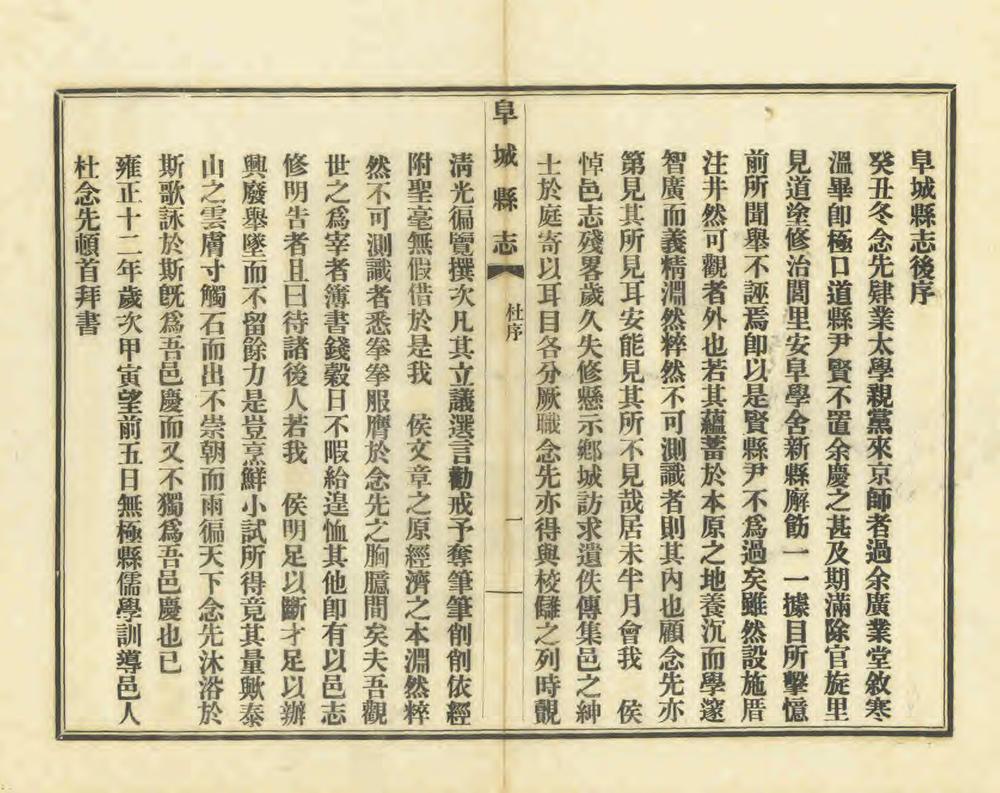 阜城縣志後序
癸丑冬念先肄業太學親黨來京師者過余廣業堂敘寒
溫畢卽極口道縣尹賢不置余慶之甚及期滿除官旋里
見道塗修治閭里安阜學舍新縣廨飭一一據目所擊憶
前所聞舉不誣焉卽以是賢縣尹不爲過矣雖然設施厝
注井然可觀者外也若其蘊蓄於本原之地養沉而學邃
智廣而義精淵然粹然不可測識者則其內也顧念先亦
第見其所見耳安能見其所不見哉居未半月會我　侯
悼邑志殘畧歲久失修懸示鄉城訪求遺佚傳集邑之紳
士於庭寄以耳目各分厥職念先亦得與校讎之列時覩
阜城縣志
杜序
一
淸光徧覽撰次凡其立議選言勸戒予奪筆筆削削依經
附聖毫無假借於是我　侯文章之原經濟之本淵然粹
然不可測識者悉拳拳服膺於念先之胸臆間矣夫吾觀
世之爲宰者簿書錢穀日不暇給遑恤其他卽有以邑志
修明告者且曰待諸後人若我　侯明足以斷才足以辦
興廢舉墜而不留餘力是豈烹鮮小試所得竟其量歟泰
山之雲膚寸觸石而出不崇朝而雨徧天下念先沐浴於
斯歌詠於斯旣爲吾邑慶而又不獨爲吾邑慶也已
雍正十二年歲次甲寅望前五日無極縣儒學訓導邑人
杜念先頓首拜書